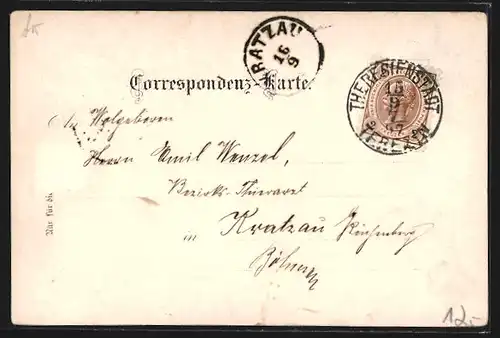 KRATZAU
16
9
THERESIENSTADT
16
9
97
TEREZIN
Correspondenz-Karte.
Wolgeboren
Herrn Emil Wenzel,
Bezirks-Thierarzt
in Kratzau
Reichenberg
Böhmen
Nur für die
12.-